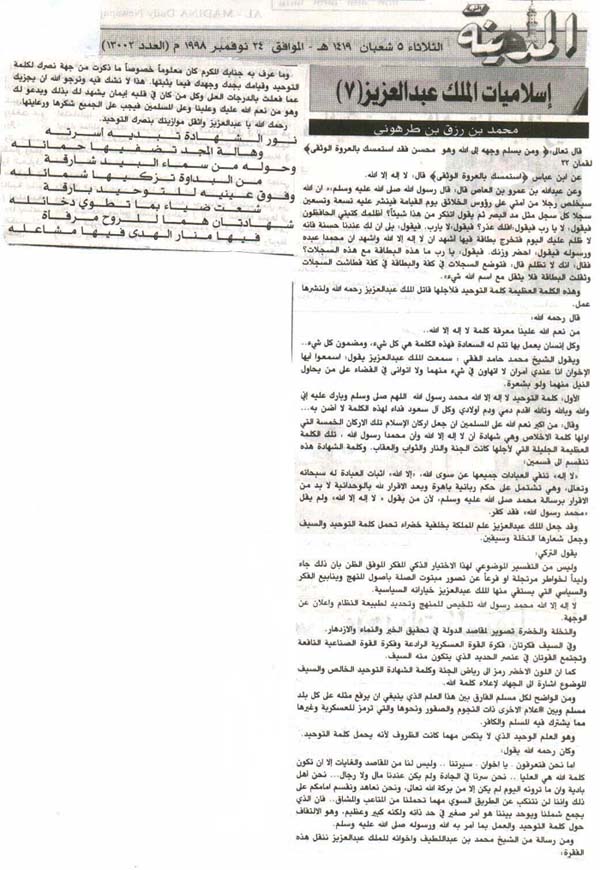 AL - MADINA Daily Newspaper
المدينة
الثلاثاء ٥ شعبان ١٤١٩ هـ - الموافق ٢٤ نوفمبر ١٩٩٨ م (العدد ١٣٠٠٢)
إسلاميات الملك عبدالعزيز (٧)
محمد بن رزق بن طرهوني
قال تعالى: ﴿ ومن يسلم وجهه إلى الله وهو محسن فقد استمسك بالعروة الوثقى ﴾
لقمان ٢٢
عن ابن عباس (استمسك بالعروة الوثقى) قال: لا إله إلا الله.
وعن عبدالله بن عمرو بن العاص قال: قال رسول الله صلى الله عليه وسلم: ان الله
سيخلص رجلا من امتي على رؤوس الخلائق يوم القيامة فينشر عليه تسعة وتسعين
سجلا كل سجل مثل مد البصر ثم يقول اتنكر من هذا شيئاً؟ اظلمك كتبتي الحافظون
فيقول: لا يا رب فيقول: افلك عذر؟ فيقول: لا يارب. فيقول: بلى ان لك عندنا حسنة فانه
لا ظلم عليك اليوم فتخرج بطاقة فيها أشهد ان لا إله إلا الله واشهد ان محمدا عبده
ورسوله فيقول: احضر وزنك. فيقول: يا رب ما هذه البطاقة مع هذه السجلات؟
فقال: انك لا تظلم قال: فتوضع السجلات في كفة والبطاقة في كفة فطاشت السجلات
وثقلت البطاقة فلا يثقل مع اسم الله شيء.
وهذه الكلمة العظيمة كلمة التوحيد فلاجلها قاتل الملك عبدالعزيز رحمه الله ولنشرها
عمل.
قال رحمه الله:
من نعم الله علينا معرفة كلمة لا إله إلا الله..
وكل إنسان يعمل بها تتم له السعادة فهذه الكلمة هي كل شيء، ومضمون كل شيء..
ويقول الشيخ محمد حامد الفقي : سمعت الملك عبدالعزيز يقول: اسمعوا أيها
الإخوان انا عندي أمران لا اتهاون في شيء منهما ولا اتوانى في القضاء على من يحاول
النيل منهما ولو بشعرة.
الأول: كلمة التوحيد لا إله إلا الله محمد رسول الله اللهم صلي وسلم وبارك عليه إني
والله وبالله وتالله اقدم دمي ودم أولادي وكل آل سعود فداء لهذه الكلمة لا أضن به...
وقال: من اكبر نعم الله على المسلمين ان جعل اركان الإسلام تلك الاركان الخمسة التي
اولها كلمة الاخلاص وهي شهادة أن لا إله إلا الله وأن محمدا رسول الله ، تلك الكلمة
العظيمة الجليلة التي لأجلها كانت الجنة والنار والثواب والعقاب. وكلمة الشهادة هذه
تنقسم الى قسمين:
«لا إله»، تنفي العبادات جميعها عن سوى الله، «إلا الله» اثبات العبادة له سبحانه
وتعالى، وهي تشتمل على حكم ربانية باهرة وبعد الاقرار لله بالوحدانية لا بد من
الاقرار برسالة محمد صلى الله عليه وسلم، لأن من يقول « لا إله إلا الله» ولم يقل
«محمد رسول الله» فقد كفر.
وقد جعل الملك عبدالعزيز علم المملكة بخلفية خضراء تحمل كلمة التوحيد والسيف
وجعل شعارها النخلة وسيفين.
يقول التركي:
وليس من التفسير الموضوعي لهذا الاختيار الذكي المفكر الموفق الظن بان ذلك جاء
وليداً لخواطر مرتجلة او فرعاً عن تصور مبتوت الصلة بأصول المنهج وينابيع الفكر
والسياسي التي يستقي منها الملك عبدالعزيز خياراته السياسية.
لا إله إلا الله محمد رسول الله تلخيص للمنهج وتحديد لطبيعة النظام واعلان عن
الوجهة.
والنخلة والخضرة تصوير لمقاصد الدولة في تحقيق الخير والنماء والازدهار.
وفي السيف فكرتان: فكرة القوة العسكرية الرادعة وفكرة القوة الصناعية النافعة
وتجتمع القوتان في عنصر الحديد الذي يتكون منه السيف.
كما ان اللون الاخضر رمز الى رياض الجنة وكلمة الشهادة التوحيد الخالص والسيف
الموضوع اشارة الى الجهاد لإعلاء كلمة الله.
ومن الواضح لكل مسلم الفارق بين هذا العلم الذي ينبغي ان يرفع مثله على كل بلد
مسلم وبين الاعلام الاخرى ذات النجوم والصقور ونحوها والتي ترمز للعسكرية وغيرها
مما يشترك فيه المسلم والكافر.
وهو العلم الوحيد الذي لا ينكس مهما كانت الظروف لأنه يحمل كلمة التوحيد.
وكان رحمه الله يقول:
اما نحن فتعرفون . يا اخوان . سيرتنا .. وليس لنا من المقاصد والغايات إلا ان تكون
كلمة الله هي العليا .. نحن سرنا في الجادة ولم يكن عندنا مال ولا رجال... نحن أهل
بادية وان ما ترونه اليوم لم يكن إلا من بركة الله تعالى، ونحن نعاهد ونقسم امامكم على
ذلك واننا لن نتنكب عن الطريق السوي مهما تحملنا من المتاعب والمشاق.. فان الذي
يجمع شملنا ويوحد بيننا هو أمر صغير في حد ذاته ولكنه كبير وعظيم، وهو الالتفاف
حول كلمة التوحيد والعمل بما أمر به الله ورسوله صلى الله عليه وسلم.
ومن رسالة من الشيخ محمد بن عبداللطيف واخوانه للملك عبدالعزيز ننقل هذه
الفقرة:
وما عرف به جنابك المكرم كان معلوماً خصوصاً ما ذكرت من جهة نصرك لكلمة
التوحيد وقيامك بجدك وجهدك فيما يثبتها. هذا لا نشك فيه ونرجو الله ان يجزيك
عما فعلت بالدرجات العلى وكل من كان في قلبه إيمان يشهد لك بذلك ويدعو لك
وهو من نعم الله عليك وعلينا وعلى المسلمين فيجب على الجميع شكرها ورعايتها.
رحمك الله يا عبدالعزيز واثقل موازينك بنصرك التوحيد.
نور الشهادة تبديه أسرته
وهالة المجد تضفيها حمائله
وحوله من سماء البيد شارقة
من البداوة تزكيها شمائله
وفوق عينيه للتوحيد بارقة
شعت ضياء بما تطوي دخائله
شهادتان هما للروح مرفأة
فيها منار الهدى فيها مشاعله